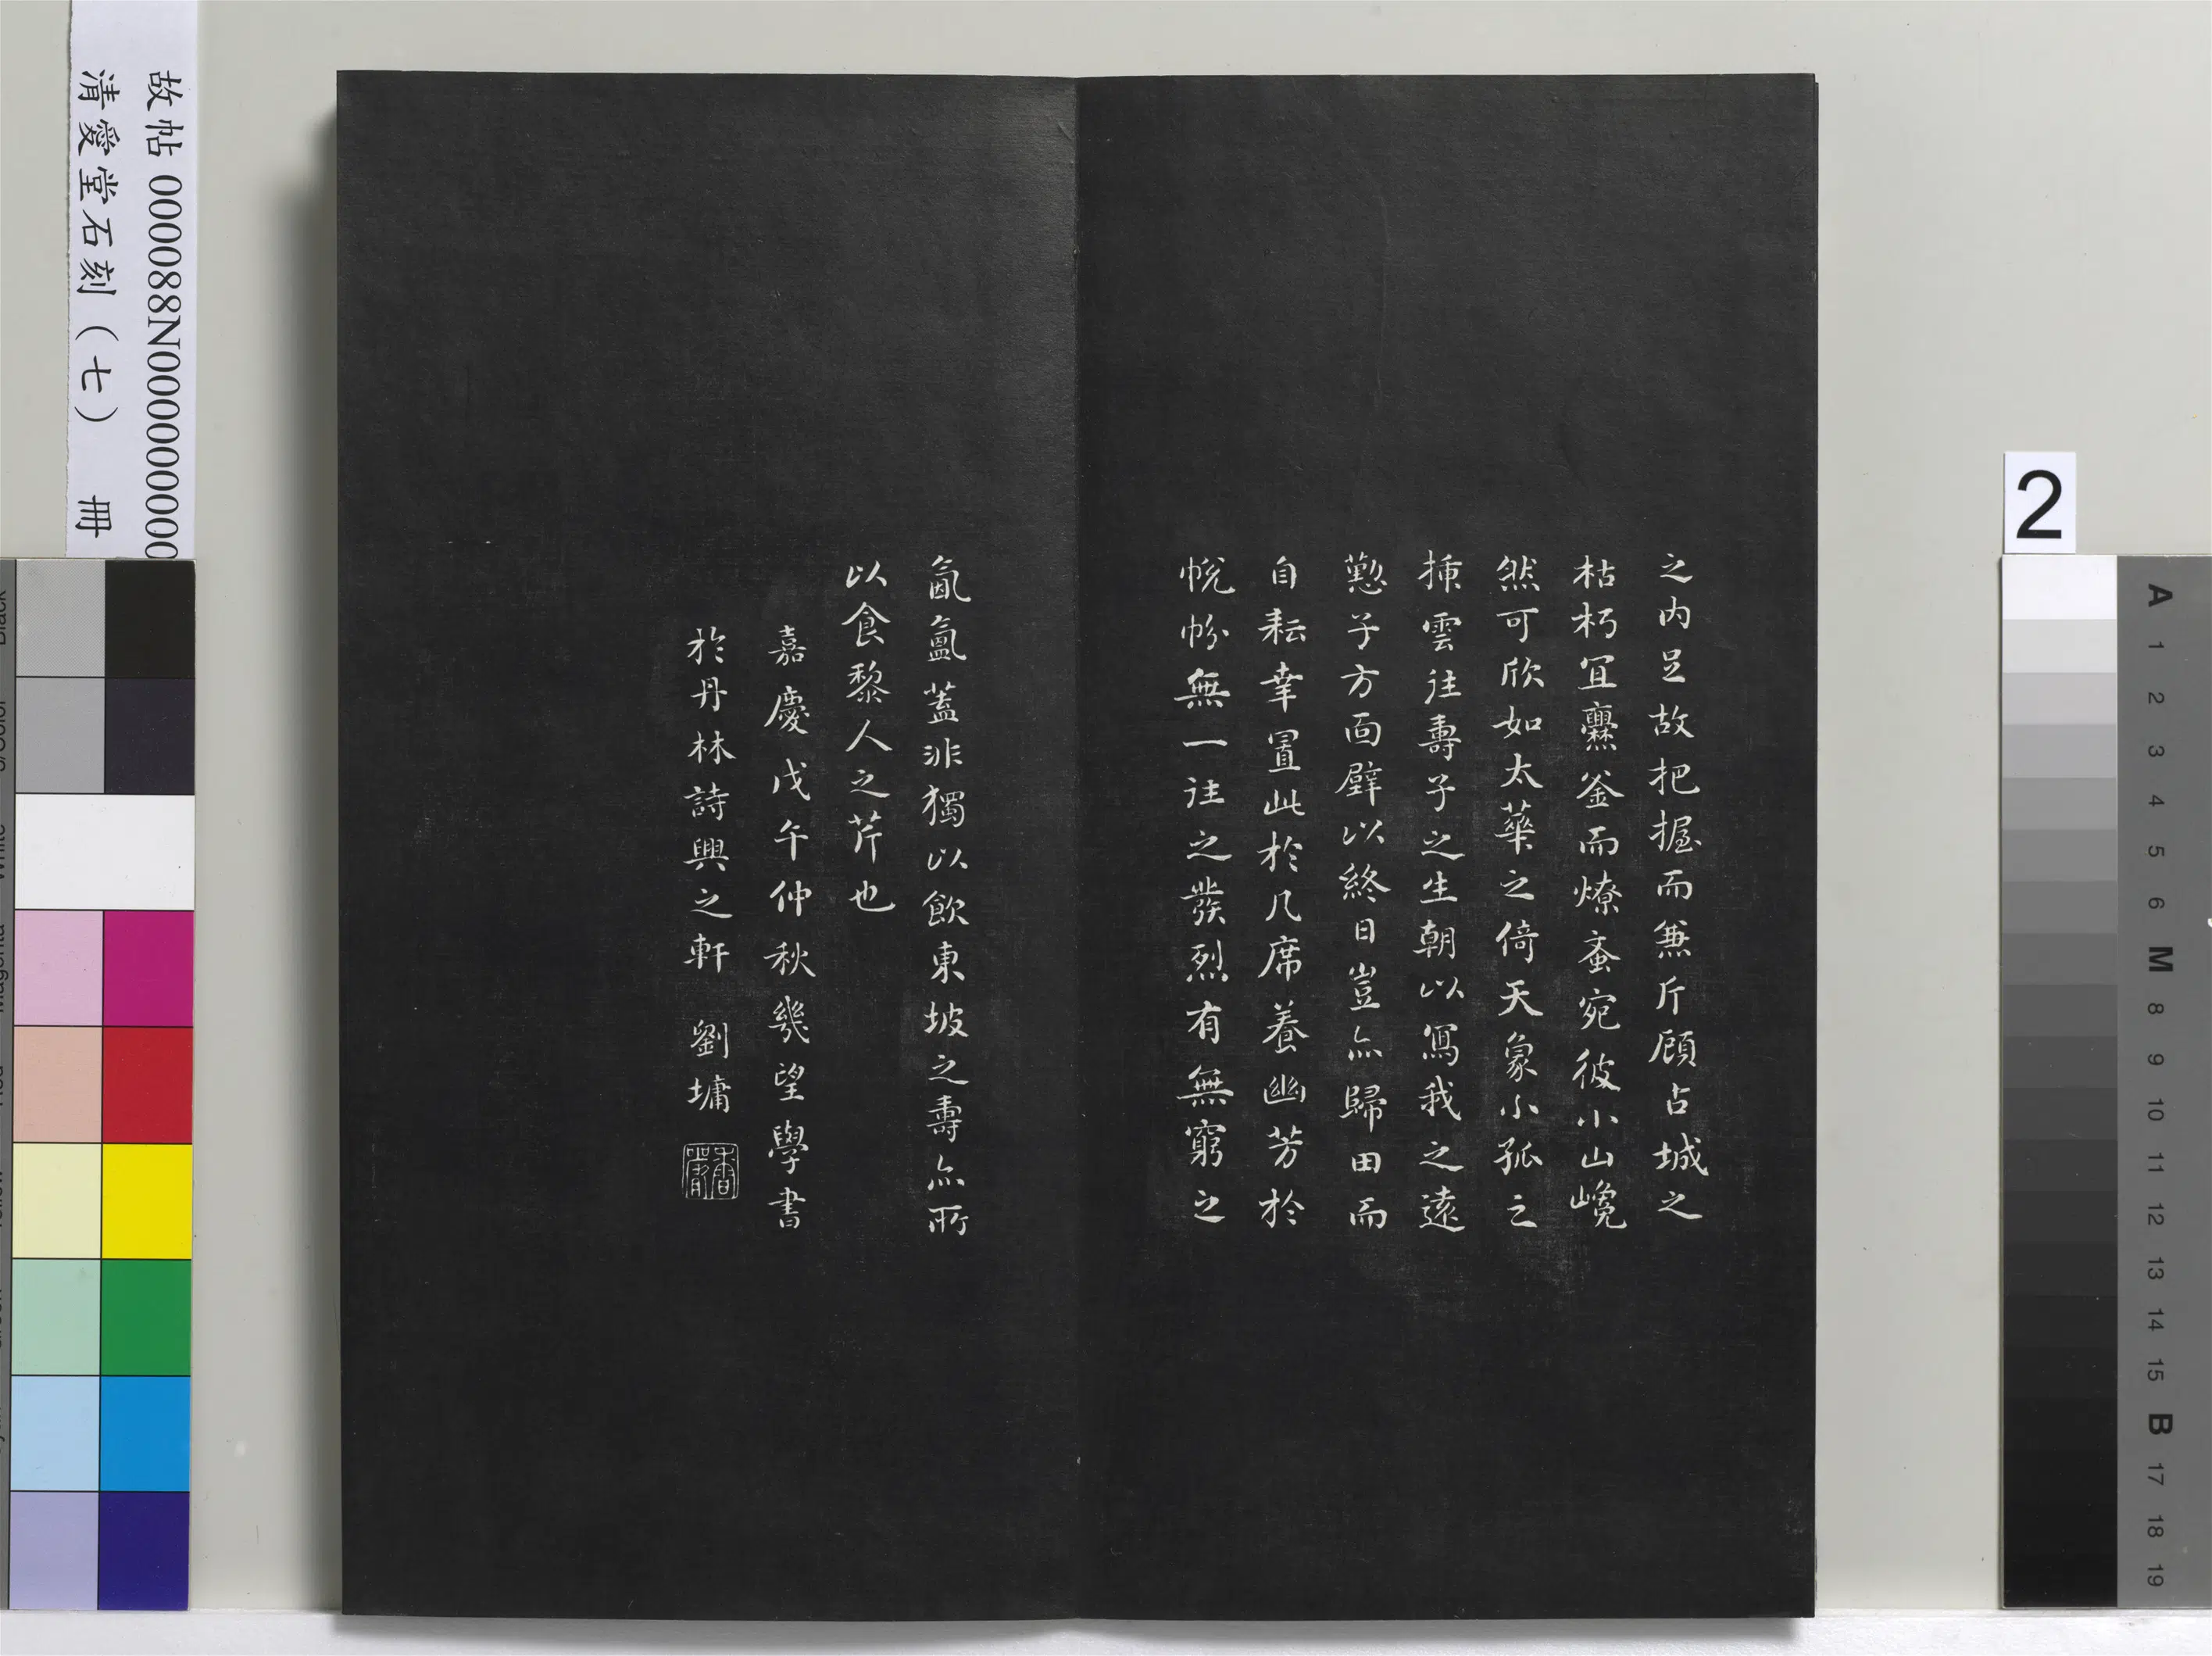 之內足故把握而兼斤顧占城之
枯朽宜爨釜而燎蚉宛彼小山巉
然可欣如太華之倚天象小孤之
插雲往壽子之生朝以寫我之遠
懃子方面壁以終日豈亦歸田而
自耘幸置此於几席養幽芳於
帨帉無一往之發烈有無窮之
氤氳蓋非獨以飲東坡之壽亦所
以食黎人之芹也
嘉慶戊午仲秋幾望學書
於丹林詩興之軒 劉墉
故帖 000088N000000000
清愛堂石刻（七） 冊
2
A
1
2
3
4
5
6
M
8
9
10
11
12
13
14
15
B
17
18
19